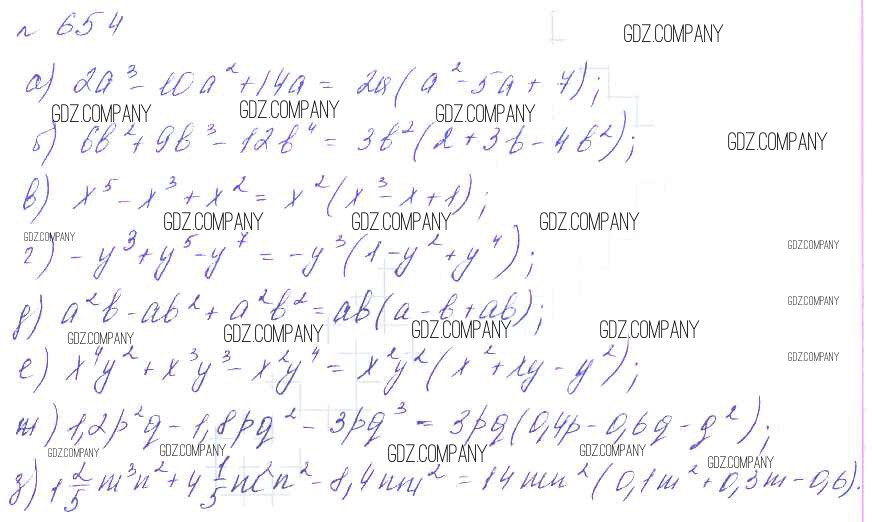 n 654
GDZ.COMPANY
а) 2a³ - 10a² + 14a = 2a(a² - 5a + 7);
GDZ.COMPANY GDZ.COMPANY GDZ.COMPANY
б) 6b² + 9b³ - 12b⁴ = 3b²(2 + 3b - 4b²);
GDZ.COMPANY
в) x⁵ - x³ + x² = x²(x³ - x + 1);
GDZ.COMPANY GDZ.COMPANY GDZ.COMPANY
GDZ.COMPANY
г) -y³ + y⁵ - y⁷ = -y³(1 - y² + y⁴);
GDZ.COMPANY
д) a²b - ab² + a²b² = ab(a - b + ab);
GDZ.COMPANY
GDZ.COMPANY GDZ.COMPANY GDZ.COMPANY GDZ.COMPANY
е) x⁴y² + x³y³ - x²y⁴ = x²y²(x² + xy - y²);
GDZ.COMPANY
ж) 1,2p²q - 1,8pq² - 3pq³ = 3pq(0,4p - 0,6q - q²);
GDZ.COMPANY GDZ.COMPANY GDZ.COMPANY GDZ.COMPANY GDZ.COMPANY
з) 1 2/5 m³n² + 4 1/5 m²n² - 8,4nm² = 14mn²(0,1m² + 0,3m - 0,6).